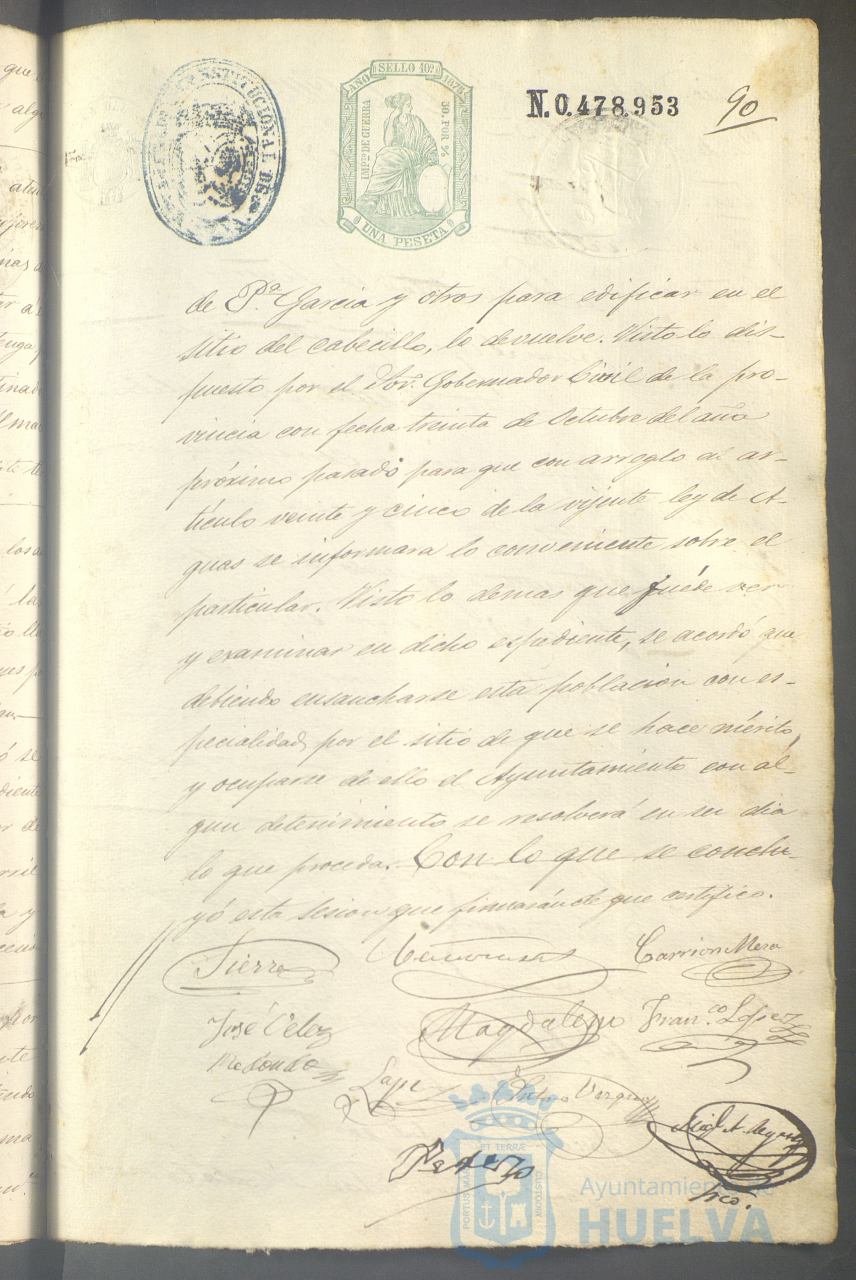 CONSTITUCIONAL DE
SELLO 10º
AÑO 1878
IMPTO DE GUERRA
50 POR %
UNA PESETA
N. 0.478.953
90
de Pª. Garcia y otros para edificar en el
sitio del cabecillo, lo devuelve. Visto lo dis-
puesto por el Sor. Gobernador Civil de la pro-
vincia con fecha treinta de Octubre del año
próximo pasado para que con arreglo al ar-
tículo veinte y cinco de la vijente ley de A-
guas se informara lo conveniente sobre el
particular. Visto lo demas que fué de ver
y examinar en dicho espediente, se acordó que
debiendo ensancharse esta poblacion con es-
pecialidad por el sitio de que se hace mérito,
y ocuparse de ello el Ayuntamiento con al-
gun detenimiento se resolverá en su dia
lo que proceda. Con lo que se conclu-
yó esta sesion que firmarán de que certifico.
Sierra
Carrion Mera
José Velez
Magdaleno
Franco. Lopez
Redondo
Lope
Vazquez
Srio.
PORTUS MARIS
ET TERRÆ
CUSTODIA
Ayuntamiento de
HUELVA